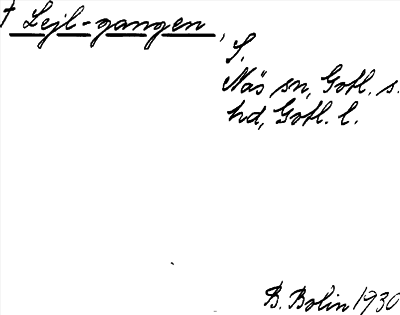 † Lejl-gangen,
S.
Näs sn, Gotl. s.
hd, Gotl. l.
B. Bolin 1930